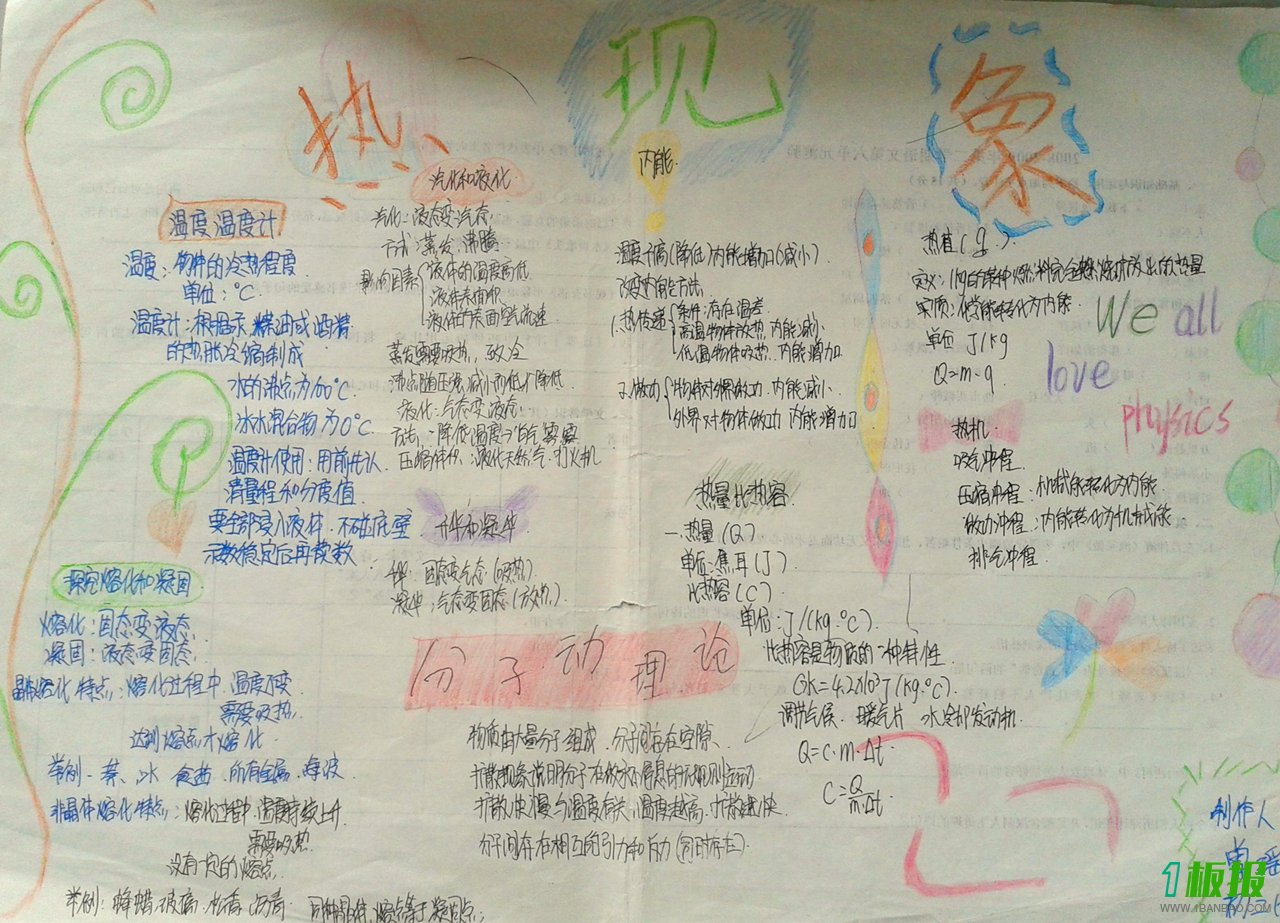 热现象
温度 温度计
温度：物体的冷热程度
单位：°C
温度计：根据
煤油或酒精
的热胀冷缩制成
水的沸点为100°C
冰水混合物为0°C
温度计使用：用前先认
清量程和分度值
要全部浸入液体 不碰底壁
示数稳定后再读数
探究熔化和凝固
熔化：固态变液态
凝固：液态变固态
晶体熔化特点：熔化过程中 温度不变
需要吸热
达到熔点才熔化
举例
冰 食盐 所有金属 海波
非晶体熔化特点：熔化过程中 温度持续上升
需要吸热
没有一定的熔点
举例：蜂蜡 玻璃 松香 沥青
同种晶体 熔点等于凝固点
汽化和液化
汽化：液态变汽态
方式：蒸发 沸腾
影响因素
液体的温度高低
液体表面积
液体的表面空气流速
蒸发需要吸热 致冷
沸点随压强减小而
降低
液化：气态变液态
方法：降低温度
雾 露
压缩体积：液化天然气 打火机
升华和凝华
升华：固态变气态（吸热）
凝华：气态变固态（放热）
内能
温度升高（降低）内能增加（减小）
改变内能方法
1.热传递
条件：存在温差
高温物体放热 内能减小
低温物体吸热 内能增加
2.做功
物体对外界做功 内能减小
外界对物体做功 内能增加
热量 比热容
一.热量（Q）
单位：焦耳（J）
比热容（C）
单位：J/(kg·°C)
比热容是物质的一种特性
=4.2×10³J/(kg·°C)
调节气候 暖气片 水冷却发动机
Q=c·m·Δt
C=Q/m·Δt
分子动理论
物质由大量分子组成 分子间存在空隙
扩散现象说明分子在做永不停息的无规则运动
扩散快慢与温度有关 温度越高 扩散越快
分子间存在相互的引力和斥力（同时存在）
热值（q）
定义：1kg的某种燃料完全燃烧放出的热量
实质：化学能转化为内能
单位 J/kg
Q=m·q
热机
吸气冲程
压缩冲程：机械能转化为内能
做功冲程：内能转化为机械能
排气冲程
We all
love
physics
制作人
1板报
WWW.1BANBAO.COM